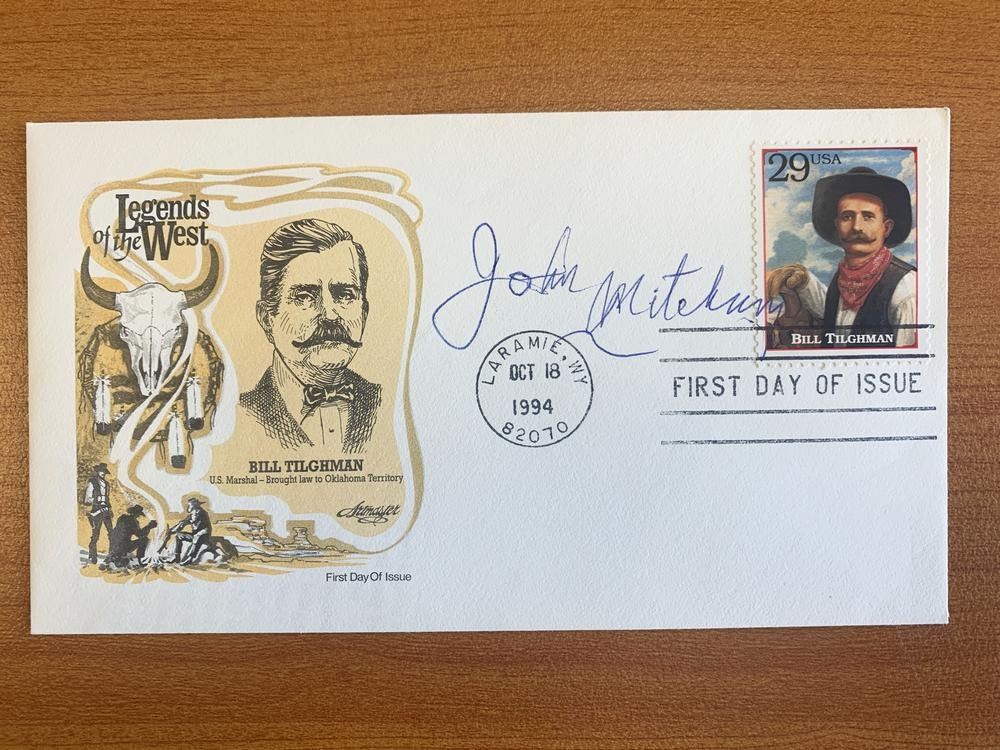 Legends
of the West
BILL TILGHMAN
U.S. Marshal – Brought law to Oklahoma Territory
Artmaster
First Day Of Issue
John Mitchum
LARAMIE, WY
OCT 18
1994
82070
29 USA
BILL TILGHMAN
FIRST DAY OF ISSUE